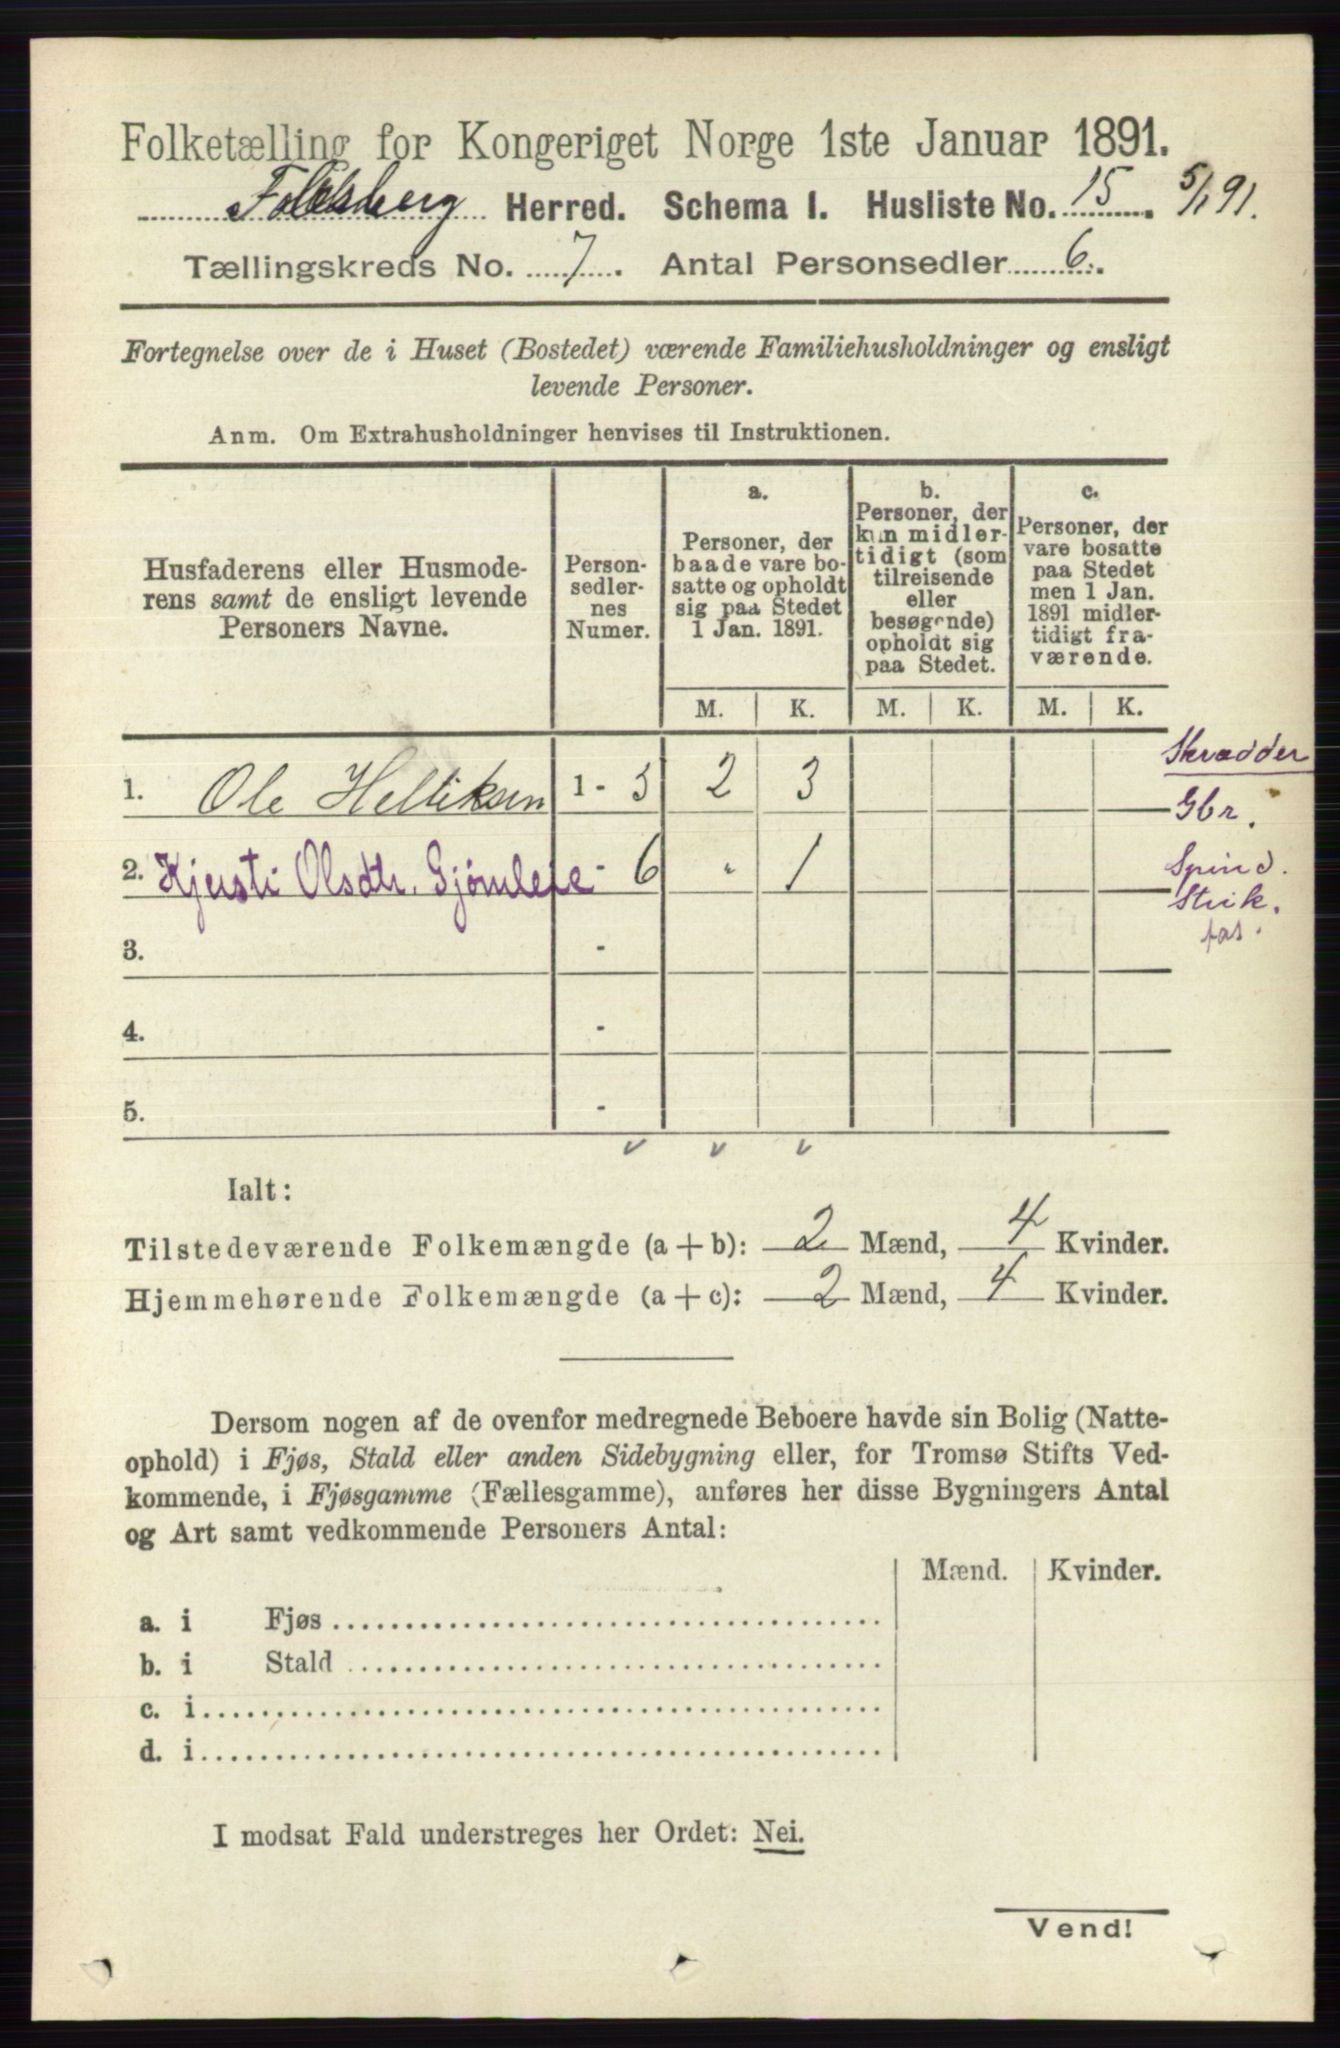 Folketælling for Kongeriget Norge 1ste Januar 1891.
Flesberg Herred. Schema I. Husliste No. 15. 5/1 91.
Tællingskreds No. 7. Antal Personsedler 6.
Fortegnelse over de i Huset (Bostedet) værende Familiehusholdninger og ensligt
levende Personer.
Anm. Om Extrahusholdninger henvises til Instruktionen.
Husfaderens eller Husmode-
rens samt de ensligt levende
Personers Navne.
Person-
sedler-
nes
Numer.
a.
Personer, der
baade vare bo-
satte og opholdt
sig paa Stedet
1 Jan. 1891.
b.
Personer, der
kun midler-
tidigt (som
tilreisende
eller
besøgende)
opholdt sig
paa Stedet.
c.
Personer, der
vare bosatte
paa Stedet
men 1 Jan.
1891 midler-
tidigt fra-
værende.
M. K. M. K. M. K.
1. Ole Helliksen 1 - 5 2 3 Skrædder
Gbr.
2. Kjersti Olsdtr. Gjømleie - 6 " 1 Spind.
Strik.
fas.
3. -
4. -
5. -
v v v
Ialt:
Tilstedeværende Folkemængde (a + b): 2 Mænd, 4 Kvinder.
Hjemmehørende Folkemængde (a + c): 2 Mænd, 4 Kvinder.
Dersom nogen af de ovenfor medregnede Beboere havde sin Bolig (Natte-
ophold) i Fjøs, Stald eller anden Sidebygning eller, for Tromsø Stifts Ved-
kommende, i Fjøsgamme (Fællesgamme), anføres her disse Bygningers Antal
og Art samt vedkommende Personers Antal:
Mænd. Kvinder.
a. i Fjøs
b. i Stald
c. i
d. i
I modsat Fald understreges her Ordet: Nei.
Vend!